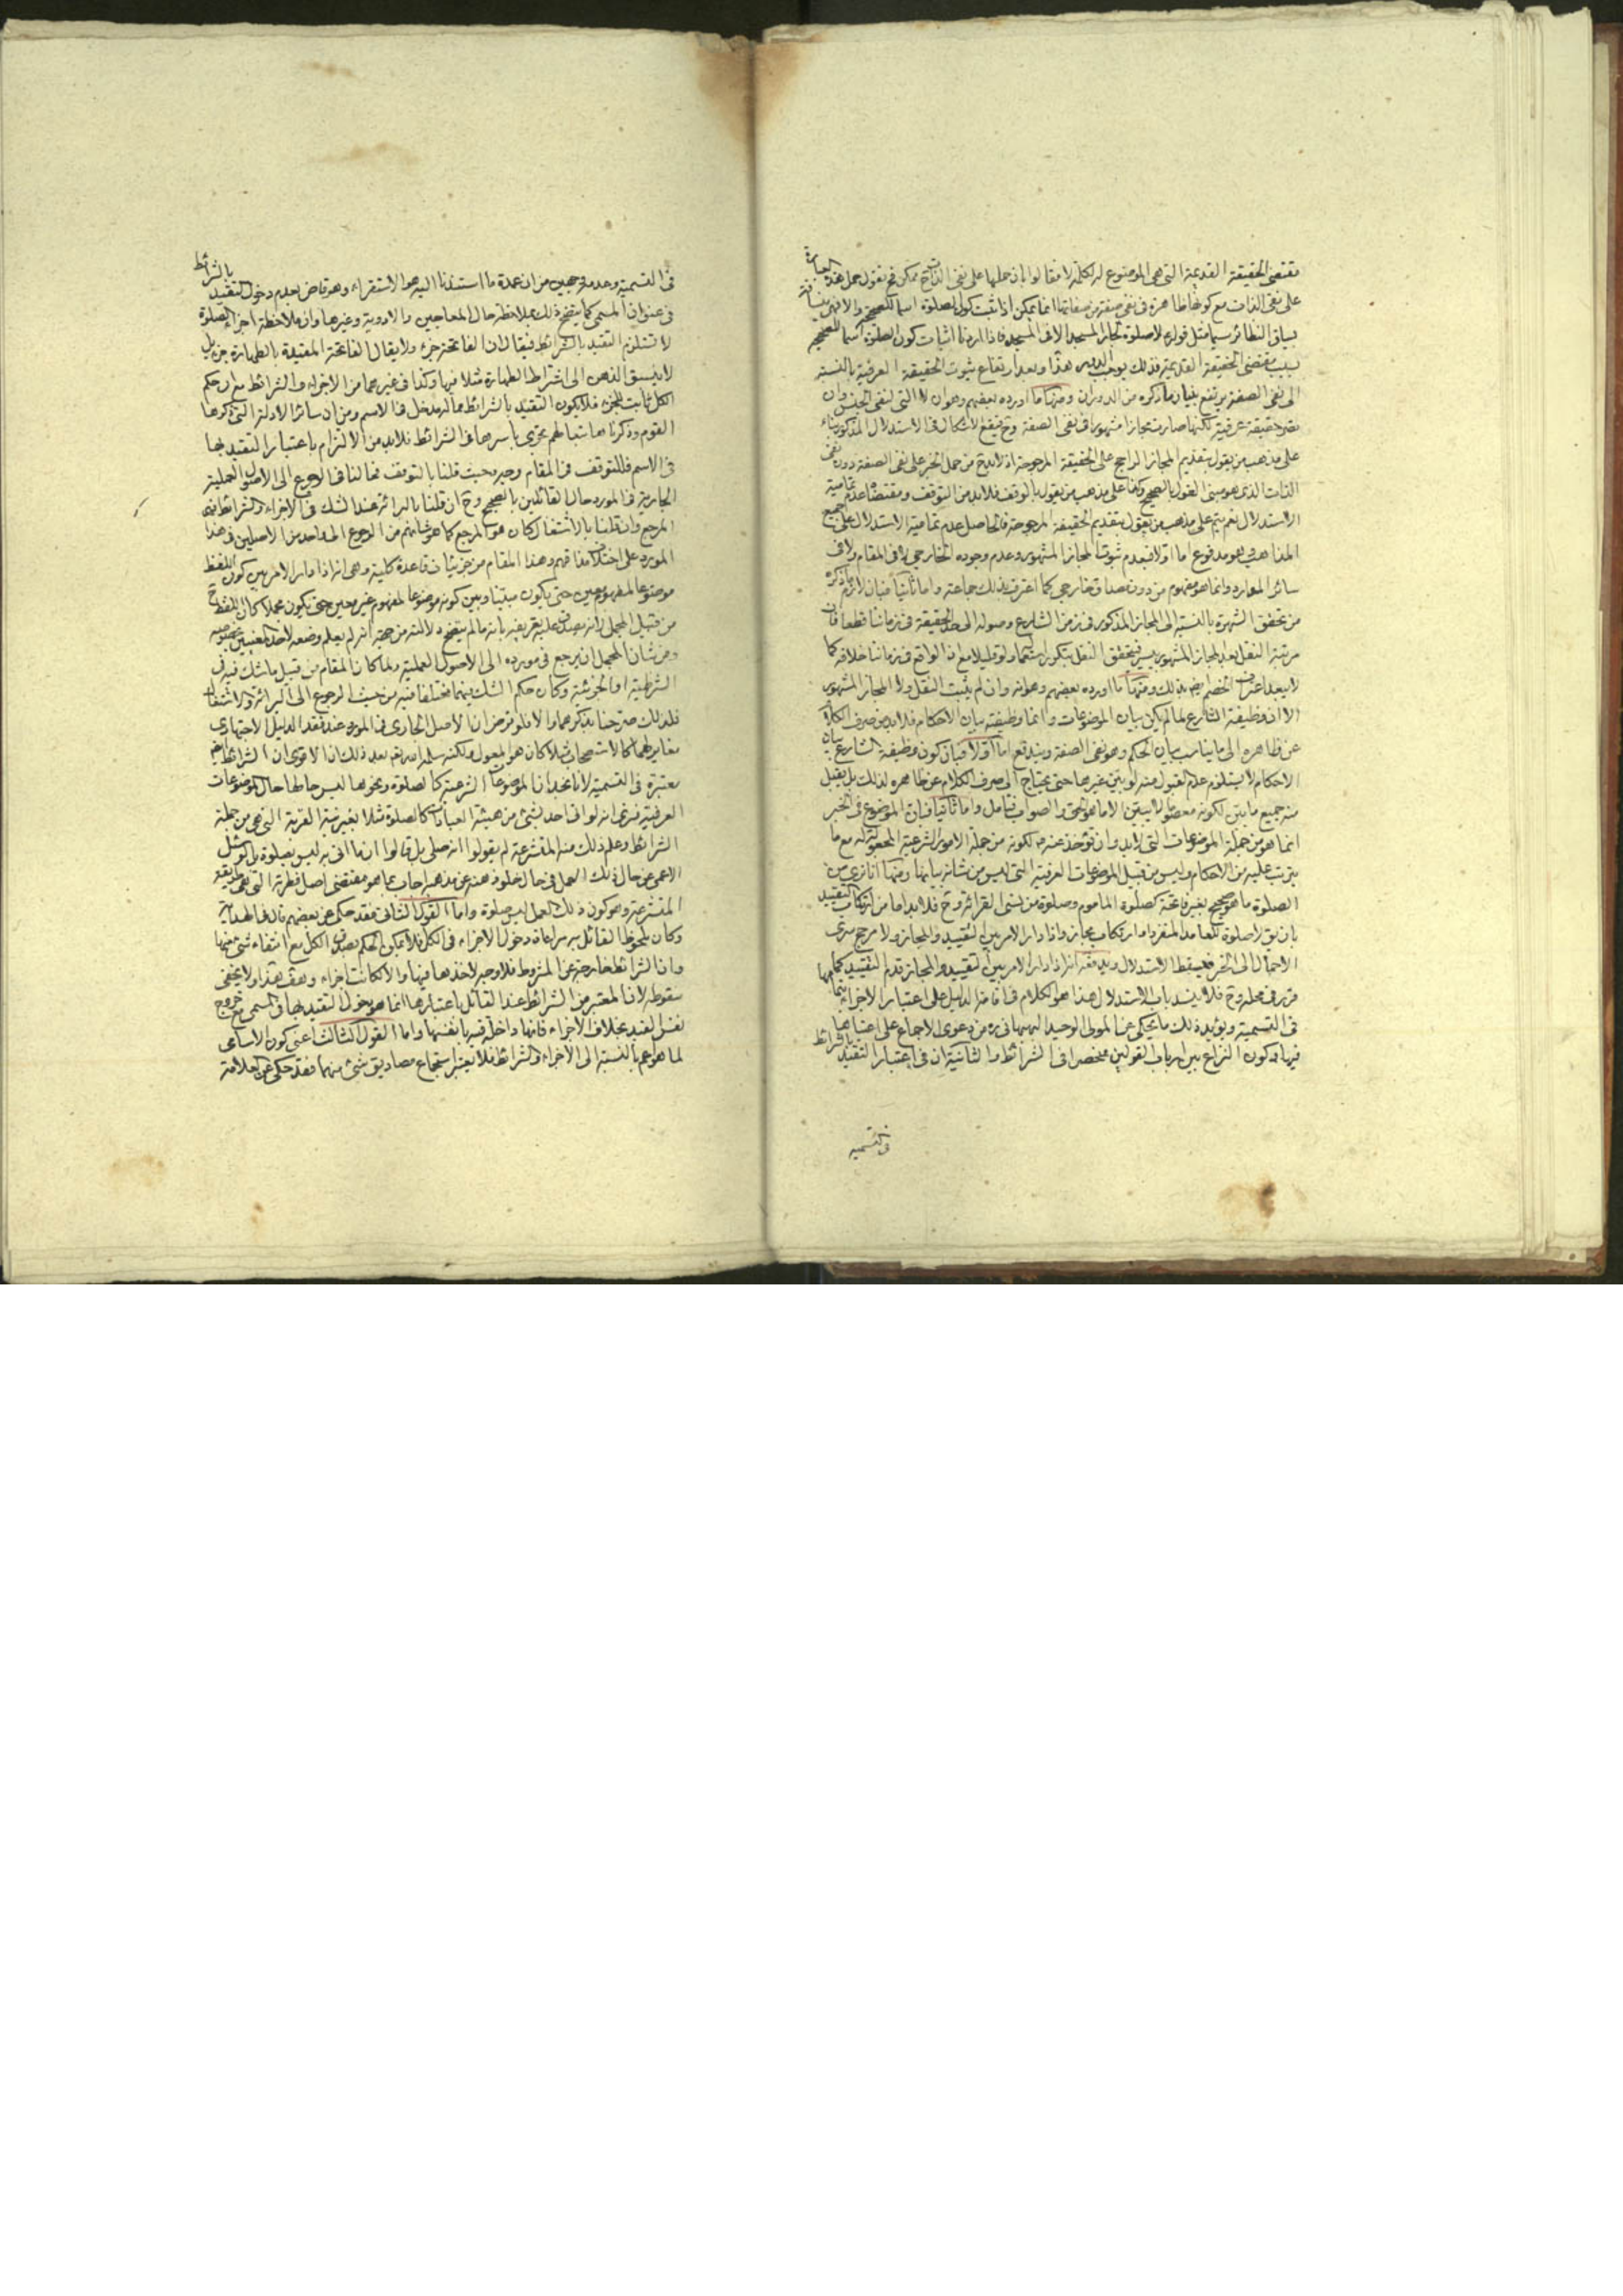 مقتضى الحقيقة القديمة التى هى الموضوع له لكلمة لا فقالوا بان حملها على نفى الذات ح ممكن فح نقول حمل هذه العبارة
على نفى الذات مع كونها ظاهرة فى نفى صفة من صفاتها انما يمكن اذا ثبت كون الصلوة اسما للصحيح والا فهى منساقة
بساق النظائر سيما مثل قوله لا صلوة لجار المسجد الا فى المسجد فاذا اردنا اثبات كون الصلوة اسما للصحيح
بسبب مقتضى الحقيقة القديمة فذلك يوجب الدور هذا وبعد ارتفاع ثبوت الحقيقة العرفية بالنسبة
الى نفى الصفة يرتفع بنيان ما ذكره من الدوران ومنها ما اورده بعضهم وهو ان لا التى لنفى الجنس وان
حقيقة عرفية لكنها صارت مجازا مشهورا فى نفى الصفة وح فيقع الاشكال فى الاستدلال المذكور بناء
على مذهب من يقول بتقديم المجاز الراجح على الحقيقة المرجوحة اذ لا بد ح من حمل الخبر على نفى الصفة دون نفى
الذات الذى هو مبنى القول بالصحيح وكذا على مذهب من يقول بالوقف فلا بد من التوقف ومقتضاه عدم تمامية
الاستدلال نعم يتم على مذهب من يقول بتقديم الحقيقة المرجوحة فالحاصل عدم تمامية الاستدلال على جميع
المذاهب وهو مدفوع اما اولا فبعدم ثبوت المجاز المشهور وعدم وجوده الخارجى لا فى المقام ولا فى
سائر الموارد وانما هو مفهوم من دون مصداق خارجى كما اعترف بذلك جماعة واما ثانيا فبان لازم ما ذكره
من تحقق الشهرة بالنسبة الى المجاز المذكور فى زمن الشارع وصوله الى حد الحقيقة فى زماننا قطعا فان
مرتبة النقل بعد المجاز المشهور يسير فيتحقق النقل بتكرر استعماله ولو قليلا مع ان الواقع فى زماننا خلافه كما
لا يبعد اعتراف الخصم ايضا بذلك ومنها ما اورده بعضهم وهو انه وان لم يثبت النقل ولا المجاز المشهور
الا ان وظيفة الشارع لما لم يكن بيان الموضوعات وانما وظيفته بيان الاحكام فلا بد من صرف الكلام
عن ظاهره الى ما يناسب بيان الحكم وهو نفى الصفة ويندفع اما اولا فبان كون وظيفة الشارع بيان
الاحكام لا يستلزم عدم القبول منه لو بين غيرها حتى يحتاج الى صرف الكلام عن ظاهره لذلك بل يقبل
منه جميع ما بين لكونه معصوما لا يبين الا ما هو الحق والصواب فتامل واما ثانيا فبان الموضوع فى الخبر
انما هو من جملة الموضوعات التى لا بد وان تؤخذ عنه لكونه من جملة الامور الشرعية المجعولة له مع ما
يترتب عليه من الاحكام وليس من قبيل الموضوعات العرفية التى ليس من شانه بيانها ومنها انا نرى من
الصلوة ما هو صحيح بغير فاتحة كصلوة الماموم وصلوة من نسى القرائة وح فلا بد اما من ارتكاب التقييد
بان يق لا صلوة للعامد المنفرد او ارتكاب مجاز واذا دار الامر بين التقييد والمجاز ولا مرجح سرى
الاحتمال الى الخبر فيسقط الاستدلال ويدفعه انه اذا دار الامر بين التقييد والمجاز قدم التقييد كما
قرر فى محله وح فلا ينسد باب الاستدلال هذا هو الكلام فى اقامة الدليل على اعتبار الاجزاء بتمامها
فى التسمية ويؤيد ذلك ما يحكى عن المولى الوحيد البهبهانى ره من دعوى الاجماع على اعتبارها
فيها وكون النزاع بين ارباب القولين منحصرا فى الشرائط والثانية ان فى اعتبار التقييد بالشرائط
فى التسمية
فى التسمية وعدمه وجهين من ان عمدة ما استندنا اليه هو الاستقراء وهو قاض بعدم دخول التقييد بالشرائط
فى عنوان المسمى كما يتضح ذلك بملاحظة حال المعاجين والادوية وغيرها وان ملاحظة اجزاء الصلوة
لا تستلزم التقيد بالشرائط فيقال ان الفاتحة جزء ولا يقال الفاتحة المقيدة بالطهارة جزء بل
لا ينسبق الذهن الى اشتراط الطهارة مثلا فيها وكذا فى غيرها من الاجزاء والشرائط مع ان حكم
الكل ثابت للجزء فلا يكون التقيد بالشرائط مما له مدخل فى الاسم ومن ان سائر الادلة التى ذكرها
القوم وذكرناها تبعا لهم تجرى باسرها فى الشرائط فلا بد من الالتزام باعتبار التقيد بها
فى الاسم فللتوقف فى المقام وجه وحيث قلنا بالتوقف فحالنا فى الرجوع الى الاصول العملية
الجارية فى المورد حال القائلين بالصحيح وح ان قلنا بالبرائة عند الشك فى الاجزاء والشرائط فهى
المرجع وان قلنا بالاشتغال كان هو المرجع كما هو شانهم من الرجوع الى واحد من الاصلين فى هذا
المورد على اختلاف مذاقهم وهذا المقام من جزئيات قاعدة كلية وهى انه اذا دار الامر بين كون اللفظ
موضوعا لمفهوم معين حتى يكون مبينا وبين كونه موضوعا لمفهوم غير معين حتى يكون مجملا كان اللفظ ح
من قبيل المجمل لانه يصدق عليه تعريفه بانه ما لم يتضح دلالته من جهة انه لم يعلم وضعه لاحد المعنيين بخصوصه
ومن شان المجمل ان يرجع فى مورده الى الاصول العملية ولما كان المقام من قبيل ما شك فيه فى
الشرطية او الجزئية وكان حكم الشك بينهما مختلفا فيه من حيث الرجوع الى البرائة والاشتغال
فلذلك صرحنا بذكرهما والا فلو فرض ان الاصل الجارى فى المورد عند فقد الدليل الاجتهادى
مغاير لهما كالاستصحاب مثلا كان هو المعول ولكنه سلمه الله رقم بعد ذلك ان الاقوى ان الشرائط ايضا
معتبرة فى التسمية لانا نجد ان الموضوعات الشرعية كالصلوة ونحوها ليس حالها حال الموضوعات
العرفية فنرى انه لو اتى احد بشئ من هيئة العبادات كالصلوة مثلا بغير نية القربة التى هى من جملة
الشرائط وعلم ذلك منه المتشرعة لم يقولوا انه صلى بل قالوا ان ما اتى به ليس بصلوة بل لو سئل
الاعمى عن حال ذلك العمل فى حال خلو ذهنه عن مذهبه اجاب بما هو مقتضى اصل فطرته التى هى طريقة
المتشرعة وهو كون ذلك العمل ليس صلوة واما القول الثانى فقد حكى عن بعضهم قال فى الهداية
وكان ملحوظ القائل به مراعاة دخول الاجزاء فى الكل فلا يمكن الحكم بصدق الكل مع انتفاء شئ منها
وان الشرائط خارجة عن المشروط فلا وجه لاخذها فيها والا لكانت اجزاء وهف هذا ولا يخفى
سقوطه لان المعتبر من الشرائط عند القائل باعتبارها انما هو دخول التقيد بها فى المسمى مع خروج
نفس القيد بخلاف الاجزاء فانها داخلة فيه بانفسها واما القول الثالث اعنى كون الاسامى
لما هو اعم بالنسبة الى الاجزاء والشرائط فلا يعتبر استجماع مصاديق شئ منهما فقد حكى عن العلامة